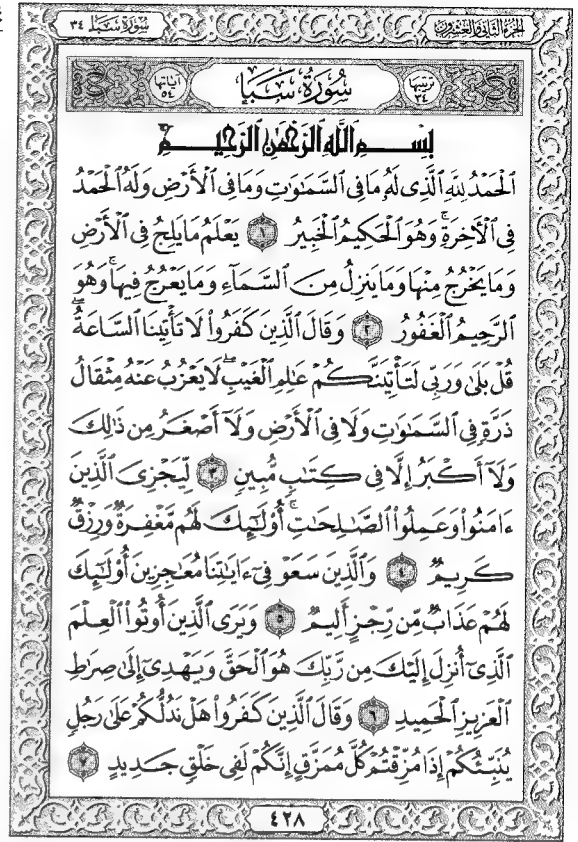 الجزء الثاني والعشرون
سورة سبإ ٣٤
ترتيبها ٣٤
سُورَةُ سَبَإٍ
آياتها ٥٤
بِسْمِ ٱللَّهِ ٱلرَّحْمَٰنِ ٱلرَّحِيمِ
ٱلْحَمْدُ لِلَّهِ ٱلَّذِى لَهُۥ مَا فِى ٱلسَّمَٰوَٰتِ وَمَا فِى ٱلْأَرْضِ وَلَهُ ٱلْحَمْدُ
فِى ٱلْأَخِرَةِ ۚ وَهُوَ ٱلْحَكِيمُ ٱلْخَبِيرُ ١ يَعْلَمُ مَا يَلِجُ فِى ٱلْأَرْضِ
وَمَا يَخْرُجُ مِنْهَا وَمَا يَنزِلُ مِنَ ٱلسَّمَآءِ وَمَا يَعْرُجُ فِيهَا ۚ وَهُوَ
ٱلرَّحِيمُ ٱلْغَفُورُ ٢ وَقَالَ ٱلَّذِينَ كَفَرُوا۟ لَا تَأْتِينَا ٱلسَّاعَةُ ۖ
قُلْ بَلَىٰ وَرَبِّى لَتَأْتِيَنَّكُمْ عَٰلِمِ ٱلْغَيْبِ ۖ لَا يَعْزُبُ عَنْهُ مِثْقَالُ
ذَرَّةٍ فِى ٱلسَّمَٰوَٰتِ وَلَا فِى ٱلْأَرْضِ وَلَآ أَصْغَرُ مِن ذَٰلِكَ
وَلَآ أَكْبَرُ إِلَّا فِى كِتَٰبٍ مُّبِينٍ ٣ لِّيَجْزِىَ ٱلَّذِينَ
ءَامَنُوا۟ وَعَمِلُوا۟ ٱلصَّٰلِحَٰتِ ۚ أُو۟لَٰٓئِكَ لَهُم مَّغْفِرَةٌ وَرِزْقٌ
كَرِيمٌ ٤ وَٱلَّذِينَ سَعَوْ فِىٓ ءَايَٰتِنَا مُعَٰجِزِينَ أُو۟لَٰٓئِكَ
لَهُمْ عَذَابٌ مِّن رِّجْزٍ أَلِيمٌ ٥ وَيَرَى ٱلَّذِينَ أُوتُوا۟ ٱلْعِلْمَ
ٱلَّذِىٓ أُنزِلَ إِلَيْكَ مِن رَّبِّكَ هُوَ ٱلْحَقَّ وَيَهْدِىٓ إِلَىٰ صِرَٰطِ
ٱلْعَزِيزِ ٱلْحَمِيدِ ٦ وَقَالَ ٱلَّذِينَ كَفَرُوا۟ هَلْ نَدُلُّكُمْ عَلَىٰ رَجُلٍ
يُنَبِّئُكُمْ إِذَا مُزِّقْتُمْ كُلَّ مُمَزَّقٍ إِنَّكُمْ لَفِى خَلْقٍ جَدِيدٍ ٧
٤٢٨